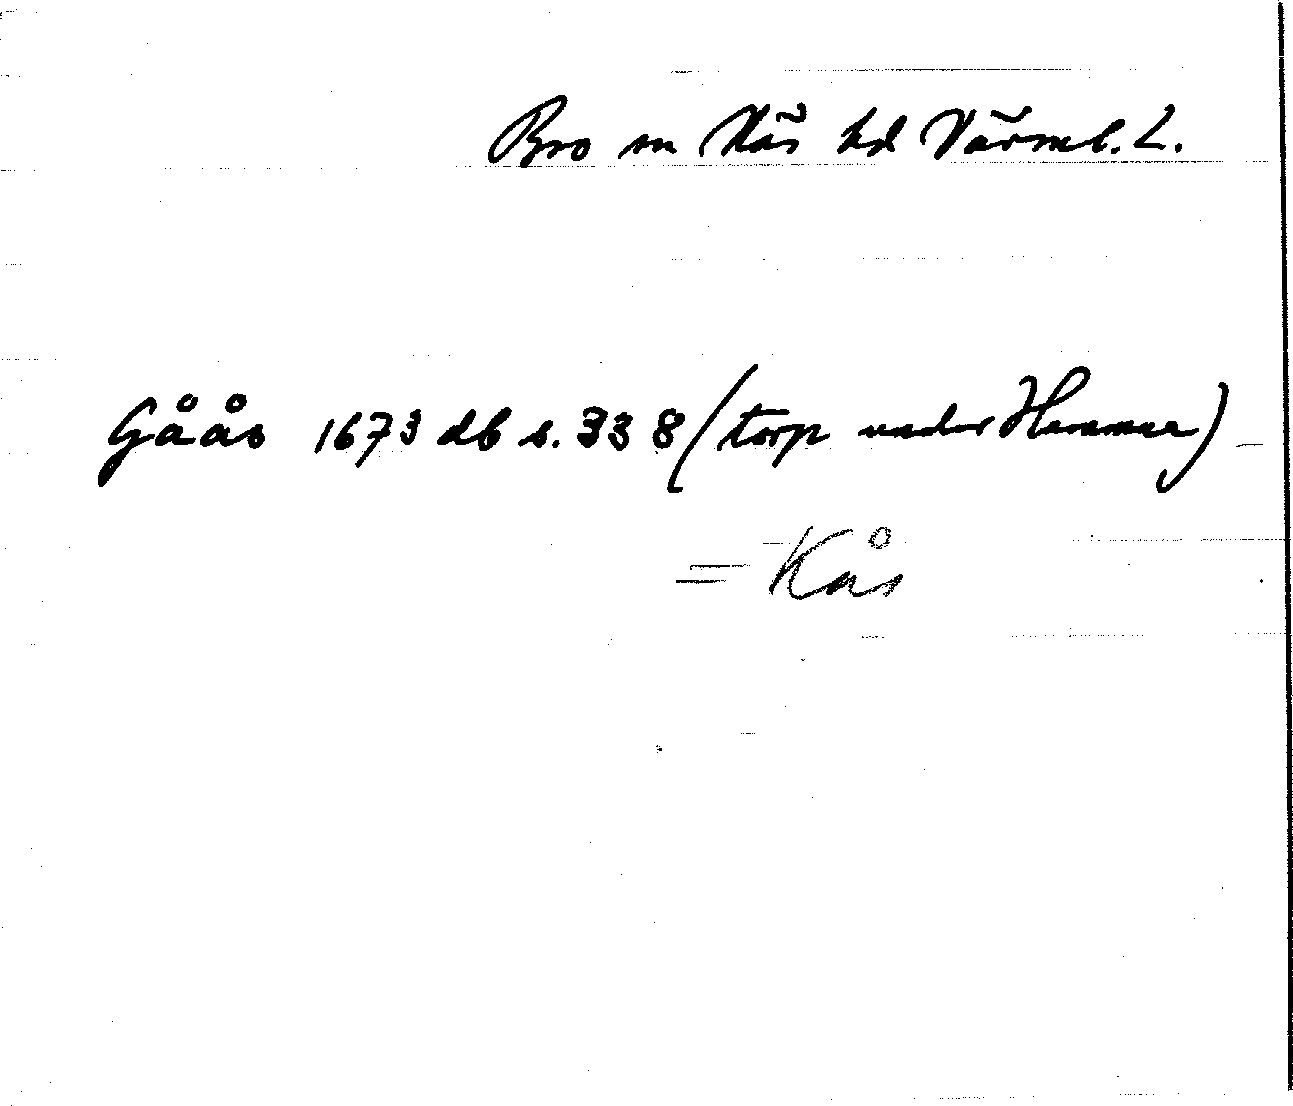 Bro sn Näs hd Värml. L.
Gåås 1673 db s. 338 (torp under Hammar)
= Kås